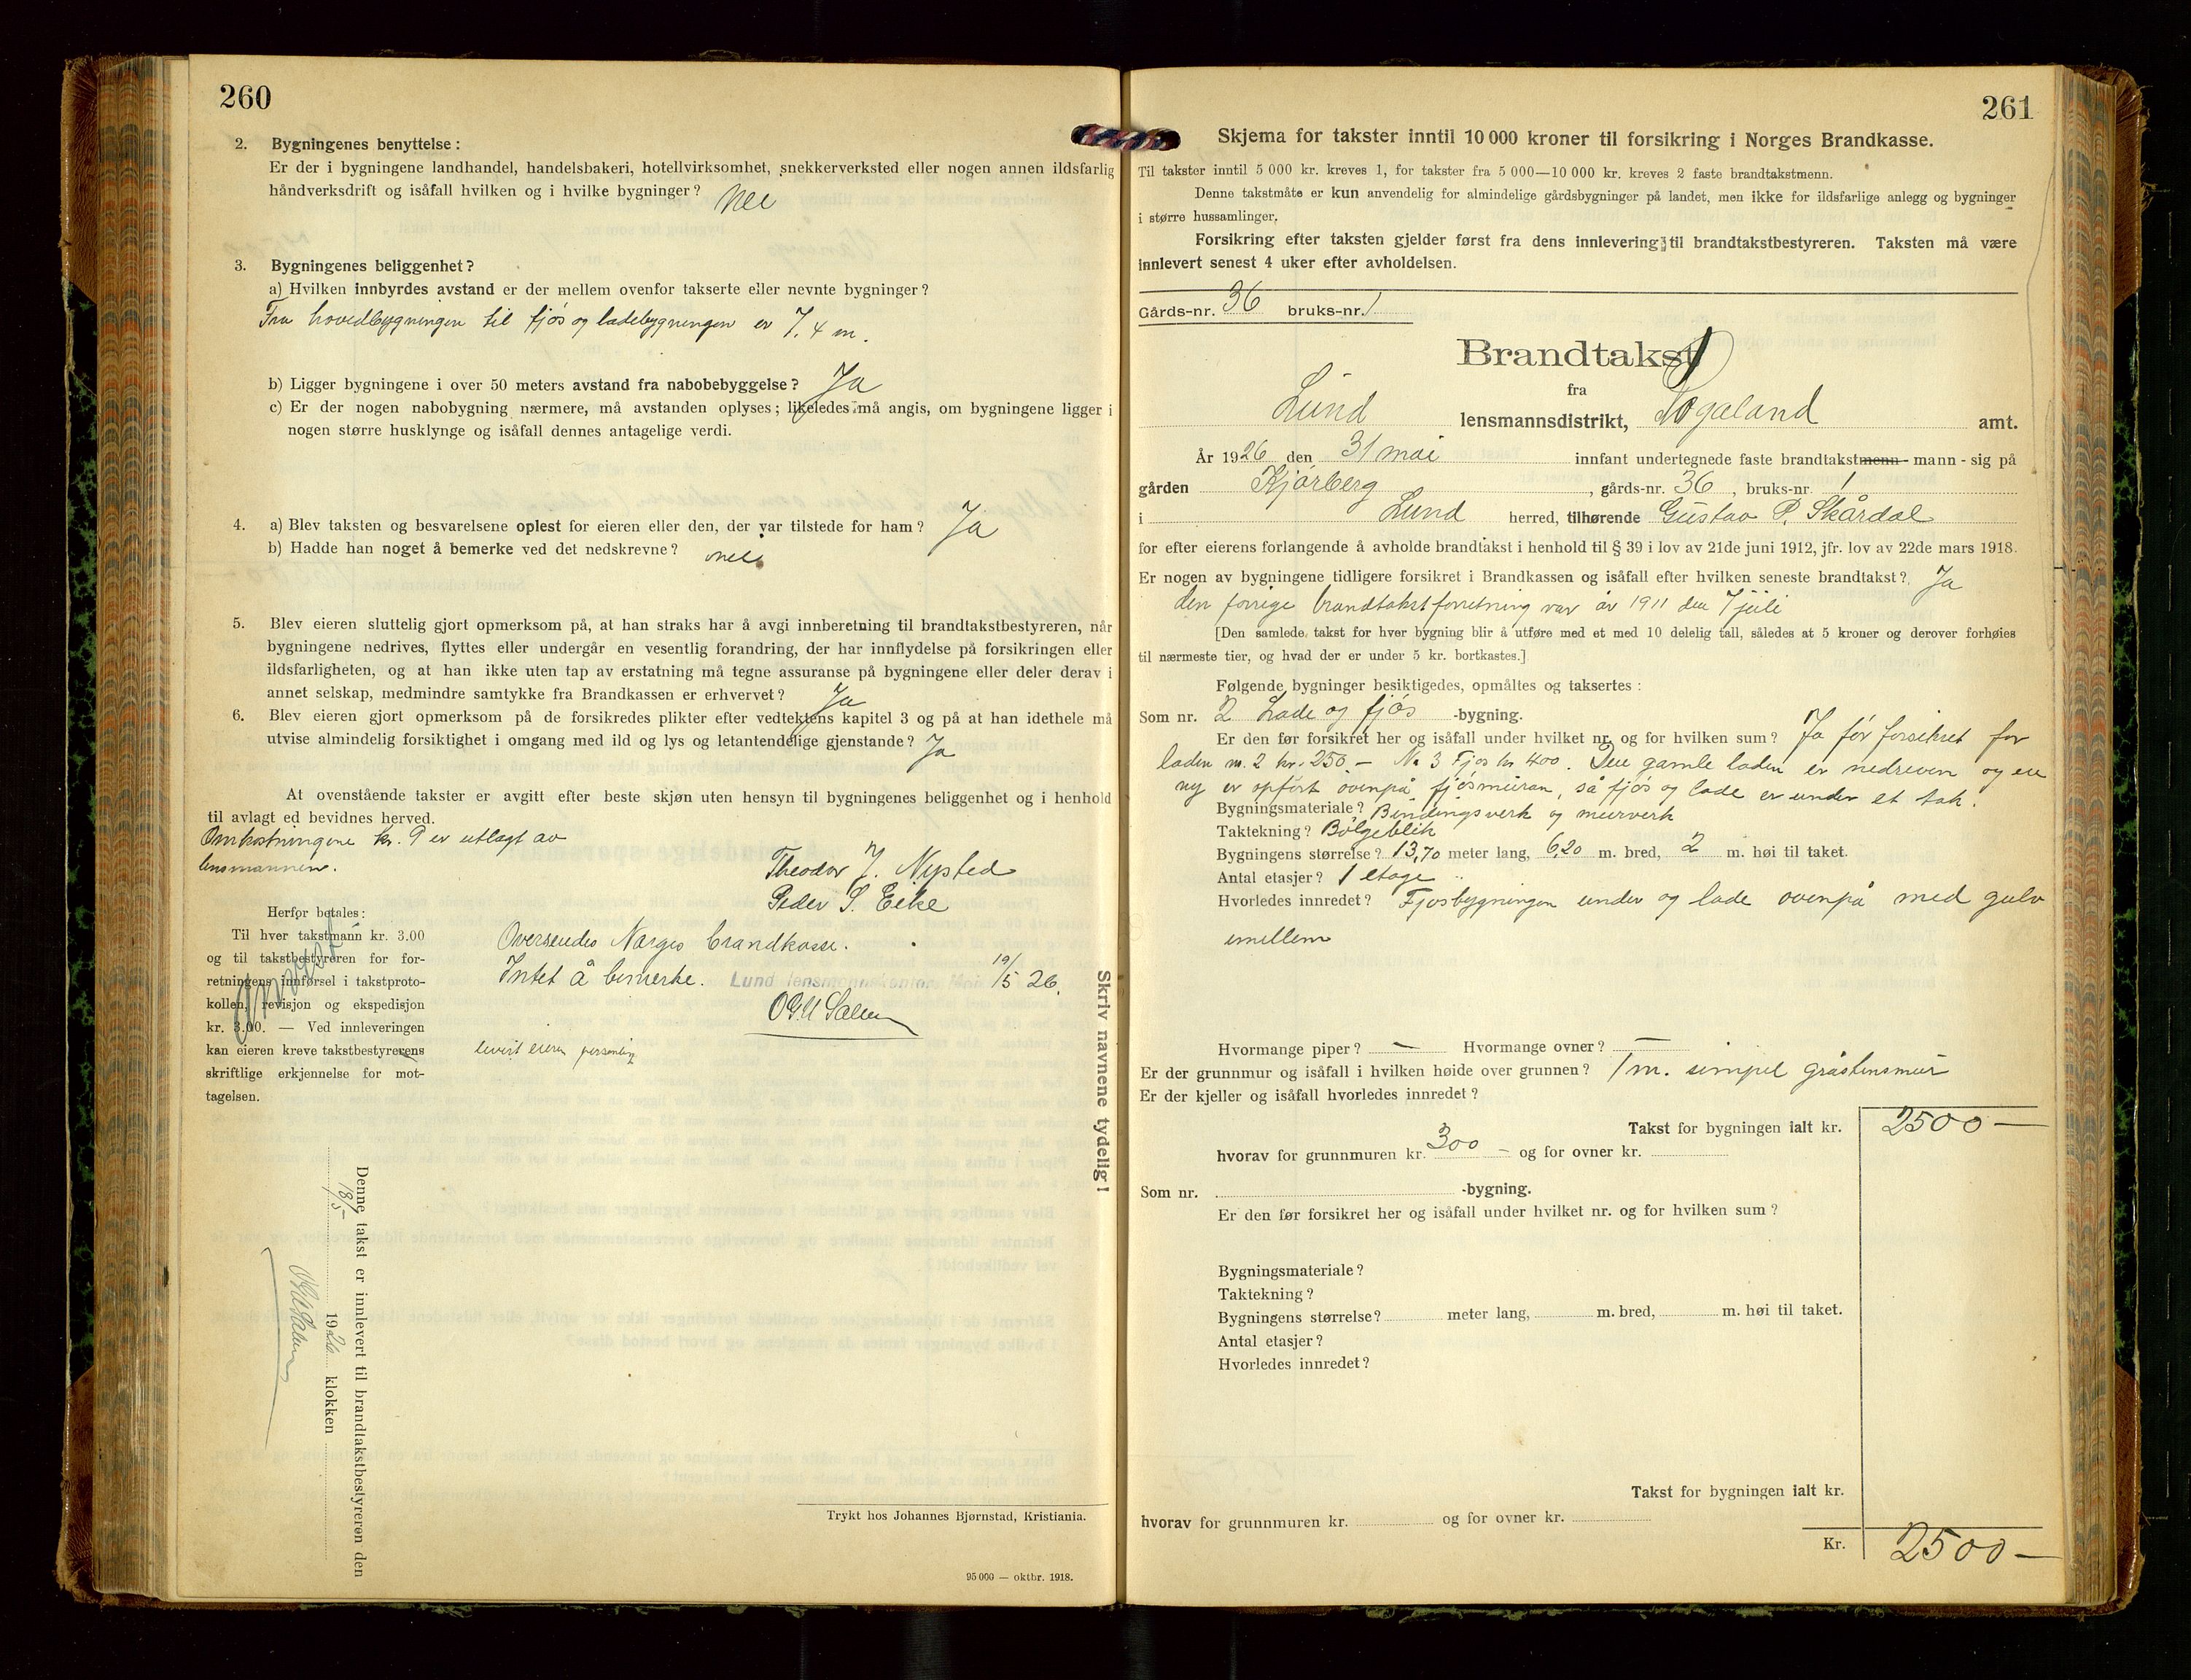 260
2. Bygningenes benyttelse:
Er der i bygningene landhandel, handelsbakeri, hotellvirksomhet, snekkerverksted eller nogen annen ildsfarlig
håndverksdrift og isåfall hvilken og i hvilke bygninger? Nei
3. Bygningenes beliggenhet?
a) Hvilken innbyrdes avstand er der mellem ovenfor takserte eller nevnte bygninger?
Fra hovedbygningen til fjøs og ladebygningen er 7,4 m.
b) Ligger bygningene i over 50 meters avstand fra nabobebyggelse? Ja
c) Er der nogen nabobygning nærmere, må avstanden oplyses; likeledes må angis, om bygningene ligger i
nogen større husklynge og isåfall dennes antagelige verdi.
4. a) Blev taksten og besvarelsene oplest for eieren eller den, der var tilstede for ham? Ja
b) Hadde han noget å bemerke ved det nedskrevne? nei
5. Blev eieren sluttelig gjort opmerksom på, at han straks har å avgi innberetning til brandtakstbestyreren, når
bygningene nedrives, flyttes eller undergår en vesentlig forandring, der har innflydelse på forsikringen eller
ildsfarligheten, og at han ikke uten tap av erstatning må tegne assuranse på bygningene eller deler derav i
annet selskap, medmindre samtykke fra Brandkassen er erhvervet? Ja
6. Blev eieren gjort opmerksom på de forsikredes plikter efter vedtektens kapitel 3 og på at han idethele må
utvise almindelig forsiktighet i omgang med ild og lys og letantendelige gjenstande? Ja
At ovenstående takster er avgitt efter beste skjøn uten hensyn til bygningenes beliggenhet og i henhold
til avlagt ed bevidnes herved.
Omkostningene kr. 9 er utlagt av
lensmannen.
Theodor J. Nysted
Peder S. Eike
Herfor betales:
Til hver takstmann kr. 3.00
og til takstbestyreren for for-
retningens innførsel i takstproto-
kollen, revisjon og ekspedisjon
kr. 3.00. — Ved innleveringen
kan eieren kreve takstbestyrerens
skriftlige erkjennelse for mot-
tagelsen.
Oversendes Norges brandkasse.
Intet å bemerke. Lund lensmannskontor, Moi 19/5 26.
levert eieren personlig
Skriv navnene tydelig!
Denne takst er innlevert til brandtakstbestyreren den
18/5 1926 klokken
Trykt hos Johannes Bjørnstad, Kristiania.
95 000 — oktbr. 1918.
261
Skjema for takster inntil 10 000 kroner til forsikring i Norges Brandkasse.
Til takster inntil 5 000 kr. kreves 1, for takster fra 5 000—10 000 kr. kreves 2 faste brandtakstmenn.
Denne takstmåte er kun anvendelig for almindelige gårdsbygninger på landet, men ikke for ildsfarlige anlegg og bygninger
i større hussamlinger.
Forsikring efter taksten gjelder først fra dens innlevering til brandtakstbestyreren. Taksten må være
innlevert senest 4 uker efter avholdelsen.
Gårds-nr. 36 bruks-nr. 1
Brandtakst
fra
Lund lensmannsdistrikt, Rogaland amt.
År 1926 den 31 mai innfant undertegnede faste brandtakstmenn - mann - sig på
gården Kjørberg, gårds-nr. 36, bruks-nr. 1
i Lund herred, tilhørende Gustav P. Skårdal
for efter eierens forlangende å avholde brandtakst i henhold til § 39 i lov av 21de juni 1912, jfr. lov av 22de mars 1918.
Er nogen av bygningene tidligere forsikret i Brandkassen og isåfall efter hvilken seneste brandtakst? Ja
den forrige brandtakstforretning var år 1911 den 7 juli
[Den samlede takst for hver bygning blir å utføre med et med 10 delelig tall, således at 5 kroner og derover forhøies
til nærmeste tier, og hvad der er under 5 kr. bortkastes.]
Følgende bygninger besiktigedes, opmåltes og taksertes:
Som nr. 2 Lade og fjøs -bygning.
Er den før forsikret her og isåfall under hvilket nr. og for hvilken sum? Ja før forsikret for
laden nr. 2 kr. 250 - No 3 Fjøs kr 400. Den gamle laden er nedreven og en
ny er opført ovenpå fjøsmuran, så fjøs og lade er under et tak.
Bygningsmateriale? Bindingsverk og murverk
Taktekning? Bølgeblik
Bygningens størrelse? 13,70 meter lang, 6,20 m. bred, 2 m. høi til taket.
Antal etasjer? 1 etage
Hvorledes innredet? Fjøsbygningen under og lade ovenpå med gulv
imellem
Hvormange piper? — Hvormange ovner? —
Er der grunnmur og isåfall i hvilken høide over grunnen? 1 m. simpel gråstensmur
Er der kjeller og isåfall hvorledes innredet?
Takst for bygningen ialt kr. 2500 —
hvorav for grunnmuren kr. 300 — og for ovner kr.
Som nr. -bygning.
Er den før forsikret her og isåfall under hvilket nr. og for hvilken sum?
Bygningsmateriale?
Taktekning?
Bygningens størrelse? meter lang, m. bred, m. høi til taket.
Antal etasjer?
Hvorledes innredet?
Takst for bygningen ialt kr.
hvorav for grunnmuren kr. og for ovner kr.
Kr. 2500 —